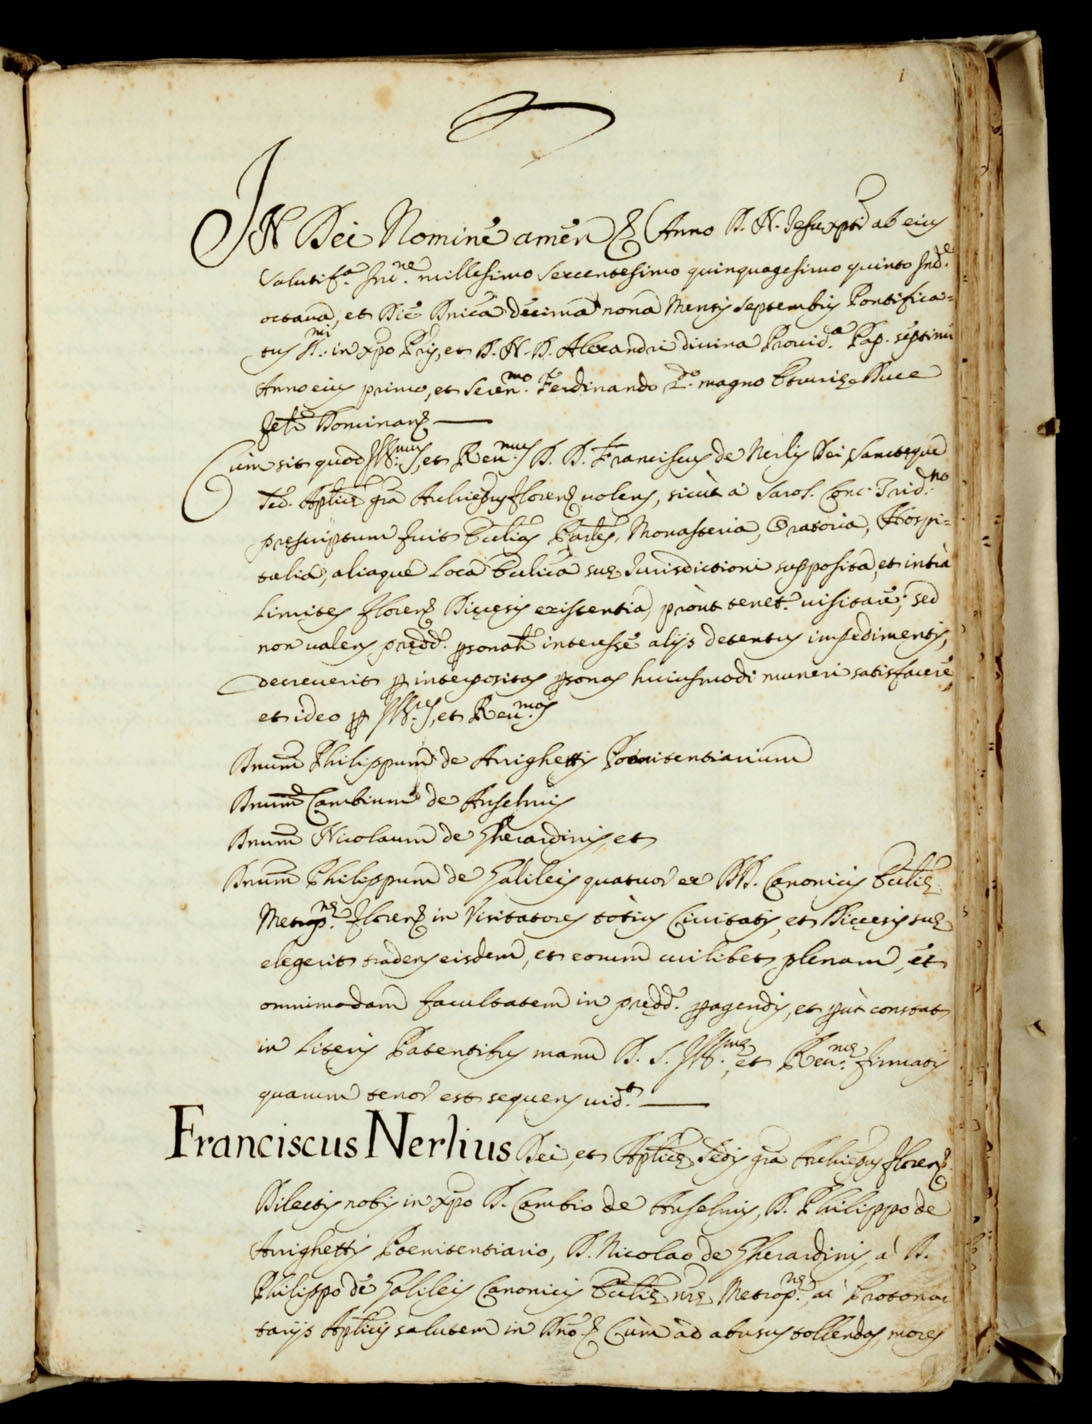 1
IN Dei Nomine amen & Anno D. N. Jesu xpti ab eius
salutif.ᵃ Inc.ⁿᵉ millesimo sexcentesimo quinquagesimo quinto Ind.ᵉ
octava, et Die Dnica decima nona Mensis Septembris Pontifica=
tus S.ᵐⁱ in xpo Pris, et D. N. D. Alexandri divina Provid.ᵃ Pap. septimi
Anno eius primo, et Seren.ᵐᵒ Ferdinando 2.ᵈᵒ magno Etrurię Duce
felr Dominan.
Cum sit quod Ill.ᵐᵘˢ, et Reu.ᵐᵘˢ D. D. Franciscus de Nerlis Dei Sanctęque
Sed. Aplicę gra Archiepus floren. uolens, sicut à Saros. Conc. Trid.ⁿᵒ
prescriptum fuit Ecclias Parles, Monasteria, Oratoria, Hospi=
talia, aliaque Loca Ecclica suę Jurisdictioni supposita, et intra
Limites floren. Dięcesis existentia, prout tenet.ʳ uisitare, sed
non ualens pręd.ᵈ psonalr interesse alijs detentus impedimentis,
decreuerit p interpositas psonas huiusmodi muneri satisfacere,
et ideo p Ill.ʳᵉˢ, et Reu.ᵐᵒˢ
Dnum Philippum de Arrighettis Poenitentiarium
Dnum Cambium de Anselmis
Dnum Nicolaum de Gherardinis, et
Dnum Philippum de Galileis quatuor ex DD. Canonicis Ecclię
Metrop.ⁿę floren. in Visitatores totius Ciuitatis, et Dięcesis suę
elegerit tradens eisdem, et eorum cuilibet plenam, et
omnimodam facultatem in pręd.ᵈ pagendis, et put constat
in Literis Patentibus manu D. S. Ill.ᵐę, et Reu.ᵐę firmatis
quarum tenor est sequens uid.ᵗ
Franciscus Nerlius Dei, et Aplicę Sedis gra Archiepus floren.
Dilectis nobis in xpo D. Cambio de Anselmis, D. Philippo de
Arrighettis Poenitentiario, D. Nicolao de Gherardinis, a' D.
Philippo de Galileis Canonicis Ecclię nrę Metrop.ⁿę, ac Protonoc
tarijs Aplicis salutem in Dno. & Cum ad abusus tollendos, mores